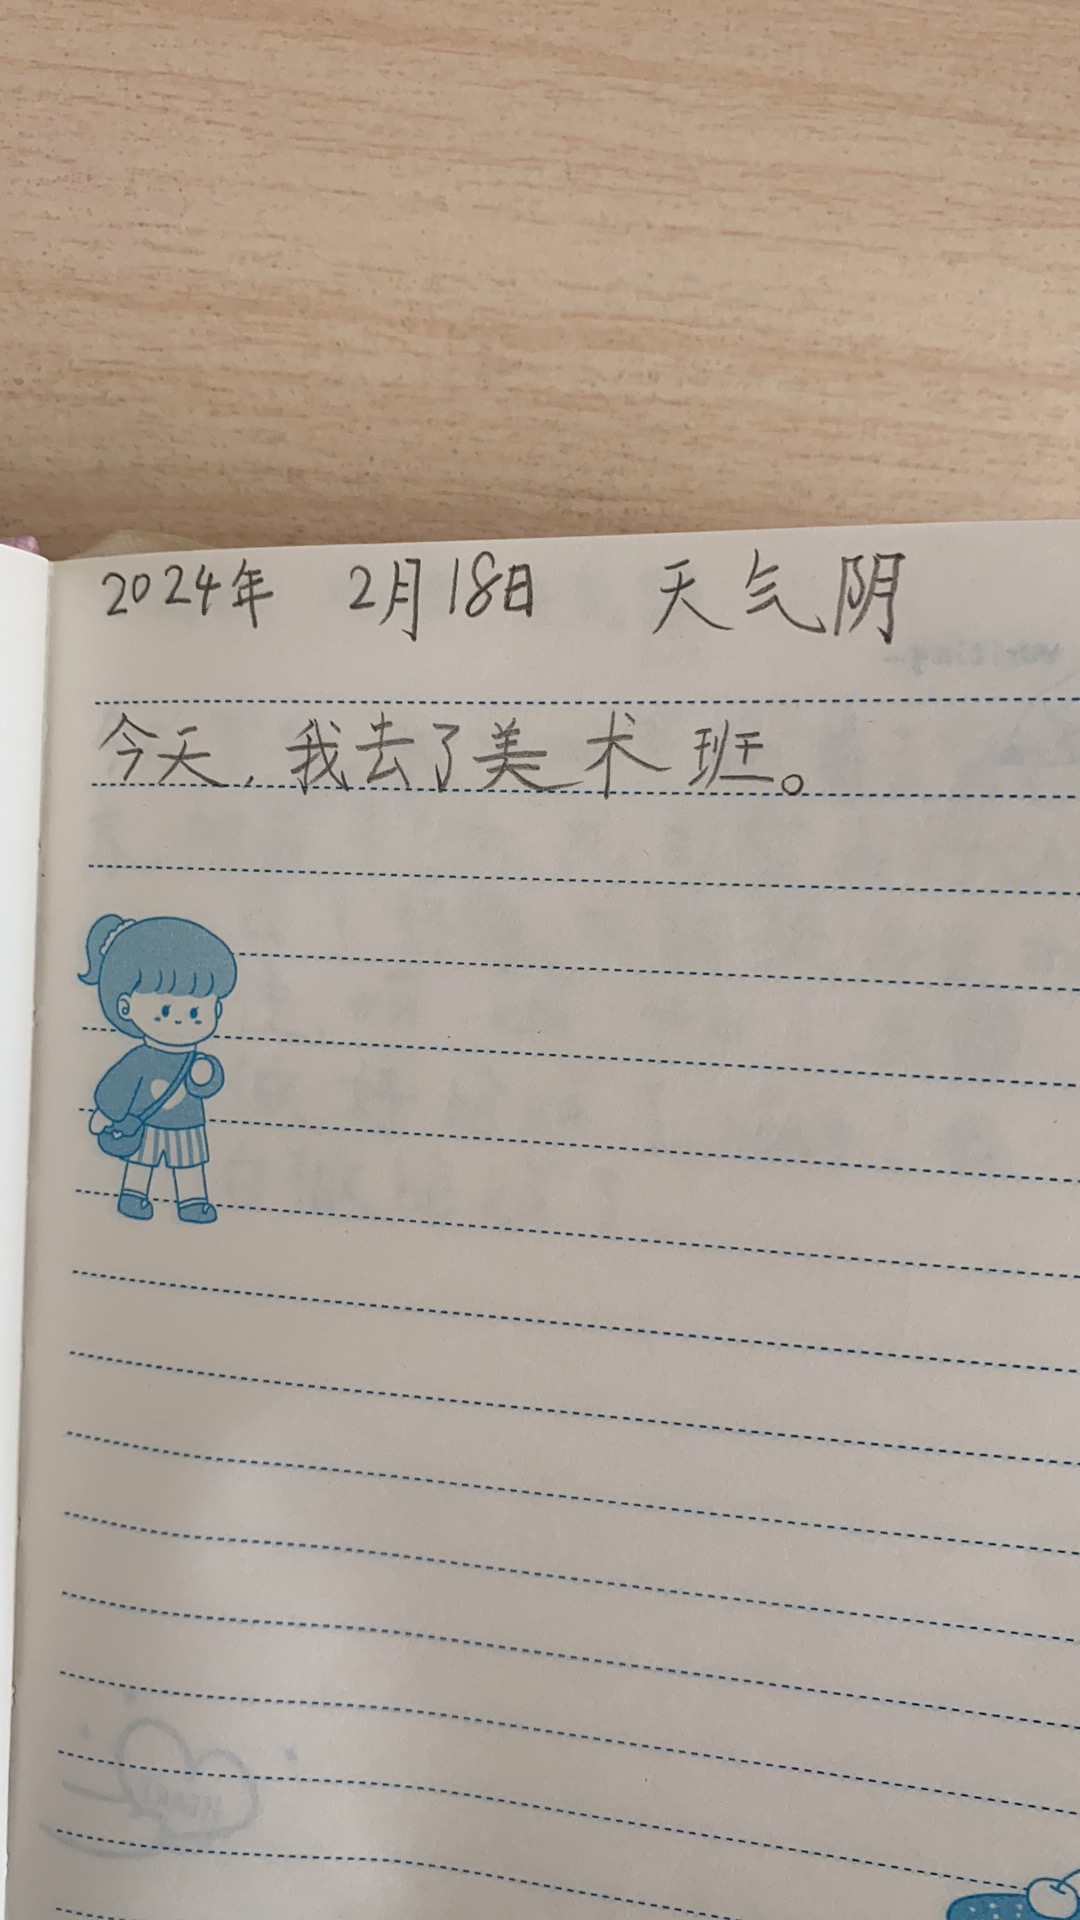 2024年 2月18日 天气阴
今天,我去了美术班。